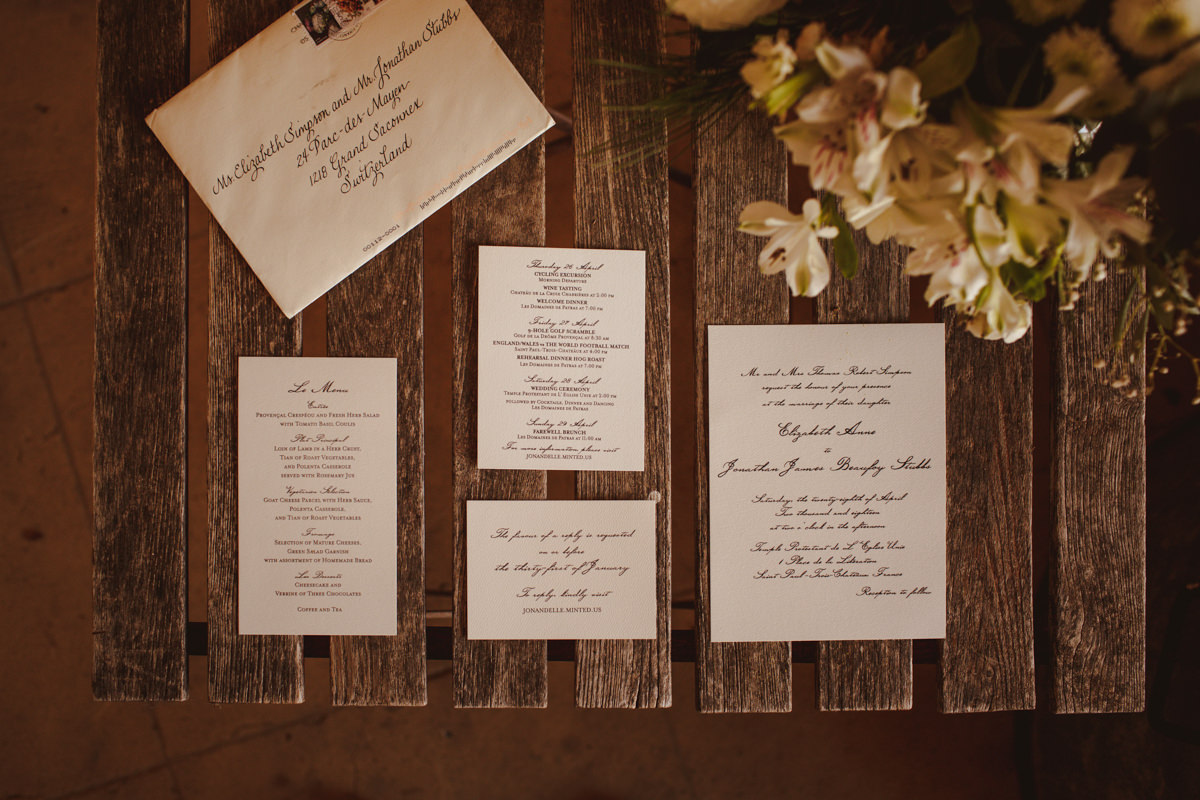 Ms. Elizabeth Simpson and Mr. Jonathan Stubbs
24 Parc-des-Mayen
1218 Grand Saconnex
Switzerland
00112-0001
Le Menu
Entrée
Provençal Crespéou and Fresh Herb Salad
with Tomato Basil Coulis
Plat Principal
Loin of Lamb in a Herb Crust,
Tian of Roast Vegetables,
and Polenta Casserole
served with Rosemary Jus
Vegetarian Selection
Goat Cheese Parcel with Herb Sauce,
Polenta Casserole,
and Tian of Roast Vegetables
Fromage
Selection of Mature Cheeses,
Green Salad Garnish
with assortment of Homemade Bread
Les Desserts
Cheesecake and
Verrine of Three Chocolates
Coffee and Tea
Thursday 26 April
CYCLING EXCURSION
Morning Departure
WINE TASTING
Chateau de la Croix Chabrières at 2:00 pm
WELCOME DINNER
Les Domaines de Patras at 7:00 pm
Friday 27 April
9-HOLE GOLF SCRAMBLE
Golf de la Drôme Provençal at 8:30 am
ENGLAND/WALES vs THE WORLD FOOTBALL MATCH
Saint Paul-Trois-Chateaux at 4:00 pm
REHEARSAL DINNER HOG ROAST
Les Domaines de Patras at 7:00 pm
Saturday 28 April
WEDDING CEREMONY
Temple Protestant de L'Eglise Unie at 2:00 pm
followed by Cocktails, Dinner and Dancing
Les Domaines de Patras
Sunday 29 April
FAREWELL BRUNCH
Les Domaines de Patras at 11:00 am
For more information please visit
JONANDELLE.MINTED.US
The favour of a reply is requested
on or before
the thirty-first of January
To reply, kindly visit
JONANDELLE.MINTED.US
Mr and Mrs Thomas Robert Simpson
request the honor of your presence
at the marriage of their daughter
Elizabeth Anne
to
Jonathan James Beaufoy Stubbs
Saturday, the twenty-eighth of April
Two thousand and eighteen
at two o'clock in the afternoon
Temple Protestant de L'Eglise Unie
1 Place de la Libération
Saint Paul-Trois-Chateaux France
Reception to follow